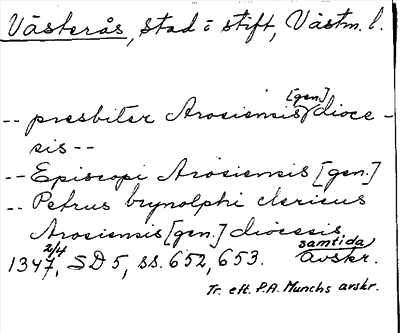 Västerås, stad o stift, Västm. l.
-- presbiter Arosiensis [gen.] dioce-
sis --
-- Episcopi Arosiensis [gen.]
-- Petrus brynolphi clericus
Arosiensis [gen.] diocesis
1347 2/4, SD 5, ss. 652, 653. samtida avskr.
Tr. eft. P.A. Munchs avskr.